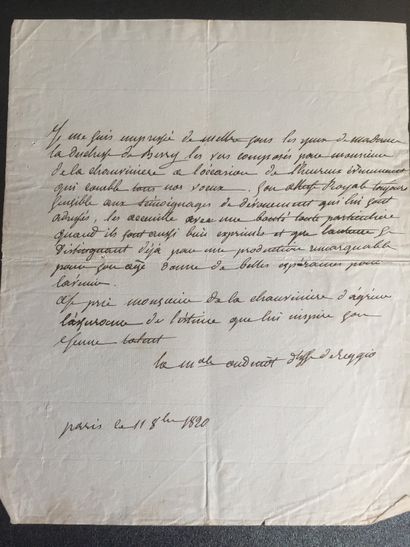 Je me suis empressée de mettre sous les yeux de madame
la duchesse de Berry les vers composés par monsieur
de la chauviniere a l'occasion de l'heureux évènement
qui comble tous nos voeux. Son altesse Royale toujours
sensible aux témoignages de dévouement qui lui sont
adressés, les accueille avec une bonté toute particuliere
quand ils sont aussi bien exprimés et que l'auteur se
distinguant déjà par une production remarquable
pour son age donne de belles espérances pour
l'avenir.
Je prie monsieur de la chauviniere d'agréer
l'assurance de l'estime que lui inspire son
jeune talent
la male oudinot dsse de reggio
paris le 11 8bre 1820